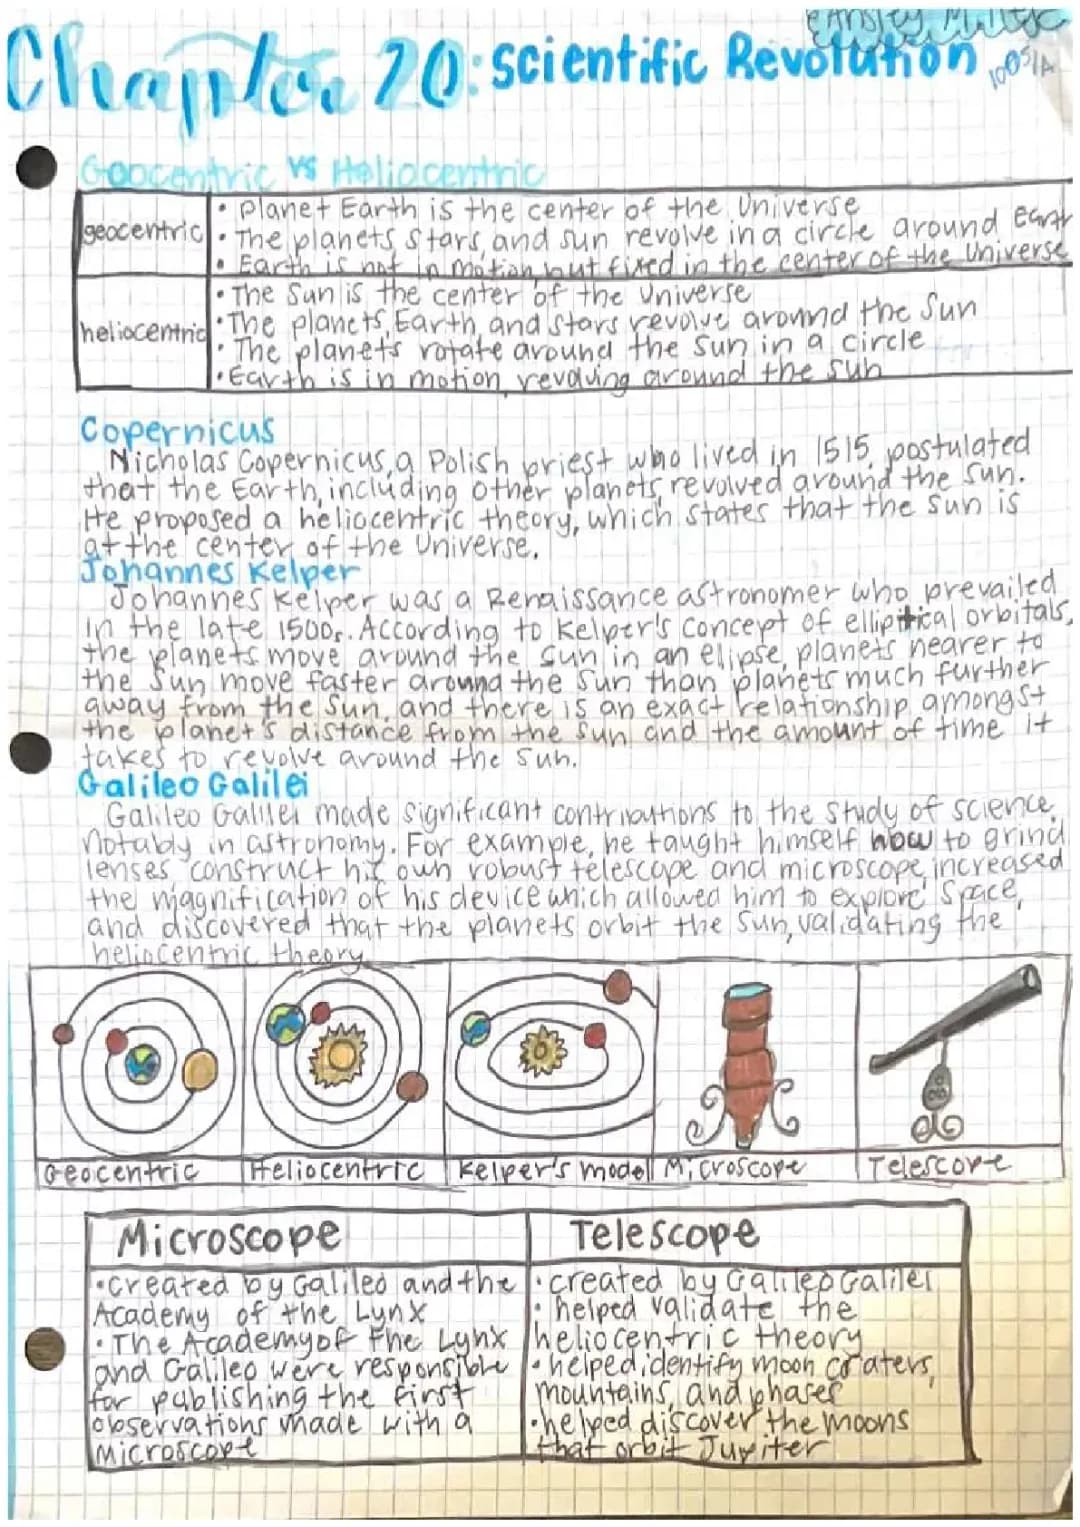 Chapter 20: Scientific Revolution
100%
Geocentric vs Heliocentric
geocentric
• Planet Earth is the center of the Universe
• The planets, stars, and sun revolve in a circle around Earth
• Earth is not in motion but fixed in the center of the Universe
heliocentric
• The Sun is the center of the Universe
• The planets, Earth, and stars revolve around the Sun
• The planets rotate around the Sun in a circle
• Earth is in motion, revolving around the sun
Copernicus
Nicholas Copernicus, a Polish priest who lived in 1515, postulated
that the Earth, including other planets, revolved around the Sun.
He proposed a heliocentric theory, which states that the Sun is
at the center of the Universe.
Johannes Kelper
Johannes Kelper was a Renaissance astronomer who prevailed
in the late 1500s. According to Kelper's concept of elliptical orbitals,
the planets move around the Sun in an elipse, planets nearer to
the Sun move faster around the Sun than planets much further
away from the Sun, and there is an exact relationship amongst
the planet's distance from the Sun and the amount of time it
takes to revolve around the Sun.
Galileo Galilei
Galileo Galilei made significant contributions to the study of science,
Notably in astronomy. For example, he taught himself how to grind
lenses construct his own robust telescope and microscope, increased
the magnification of his device which allowed him to explore Space,
and discovered that the planets orbit the Sun, validating the
heliocentric theory.
Geocentric
Heliocentric
Kelper's model
Microscope
Telescope
Microscope
• Created by Galileo and the
Academy of the Lynx
• The Academy of the Lynx
and Galileo were responsible
for publishing the first
observations made with a
microscope
Telescope
• created by Galileo Galilei
• helped validate the
heliocentric theory
• helped identify moon craters,
mountains, and phases
• helped discover the moons
that orbit Jupiter